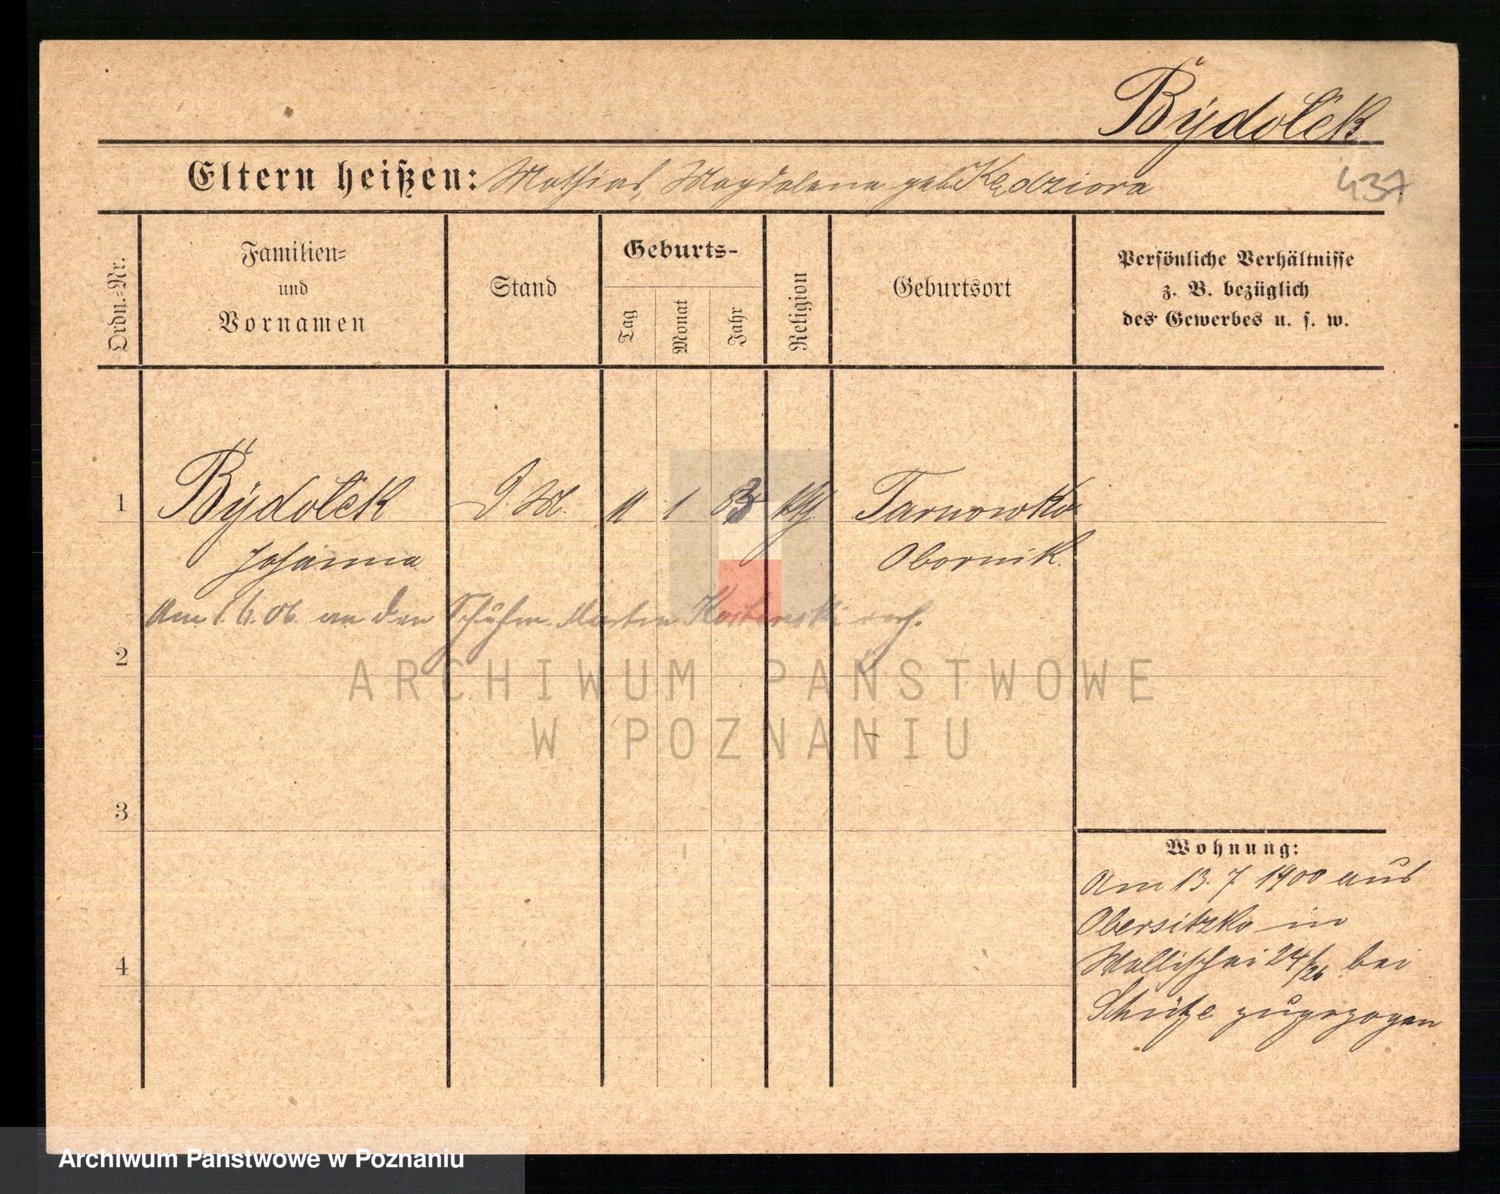 Bÿdolek
Eltern heißen: Mathias, Magdalena geb. Kedziora
437
Ordn.-Nr.
Familien-
und
Vornamen
Stand
Geburts-
Tag
Monat
Jahr
Religion
Geburtsort
Persönliche Verhältnisse
z. B. bezüglich
des Gewerbes u. s. w.
1
Bÿdolek
D. M.
11
1
83
kth
Tarnowko
Johanna
Obornik.
Am 1.6.06. an den Schuhm. Martin verh.
2
ARCHIWUM PAŃSTWOWE
W POZNANIU
3
Wohnung:
Am 13. 7 1900 aus
Obersitzko in
4
Wallischei 24/26 bei
Schütze zugezogen
Archiwum Państwowe w Poznaniu